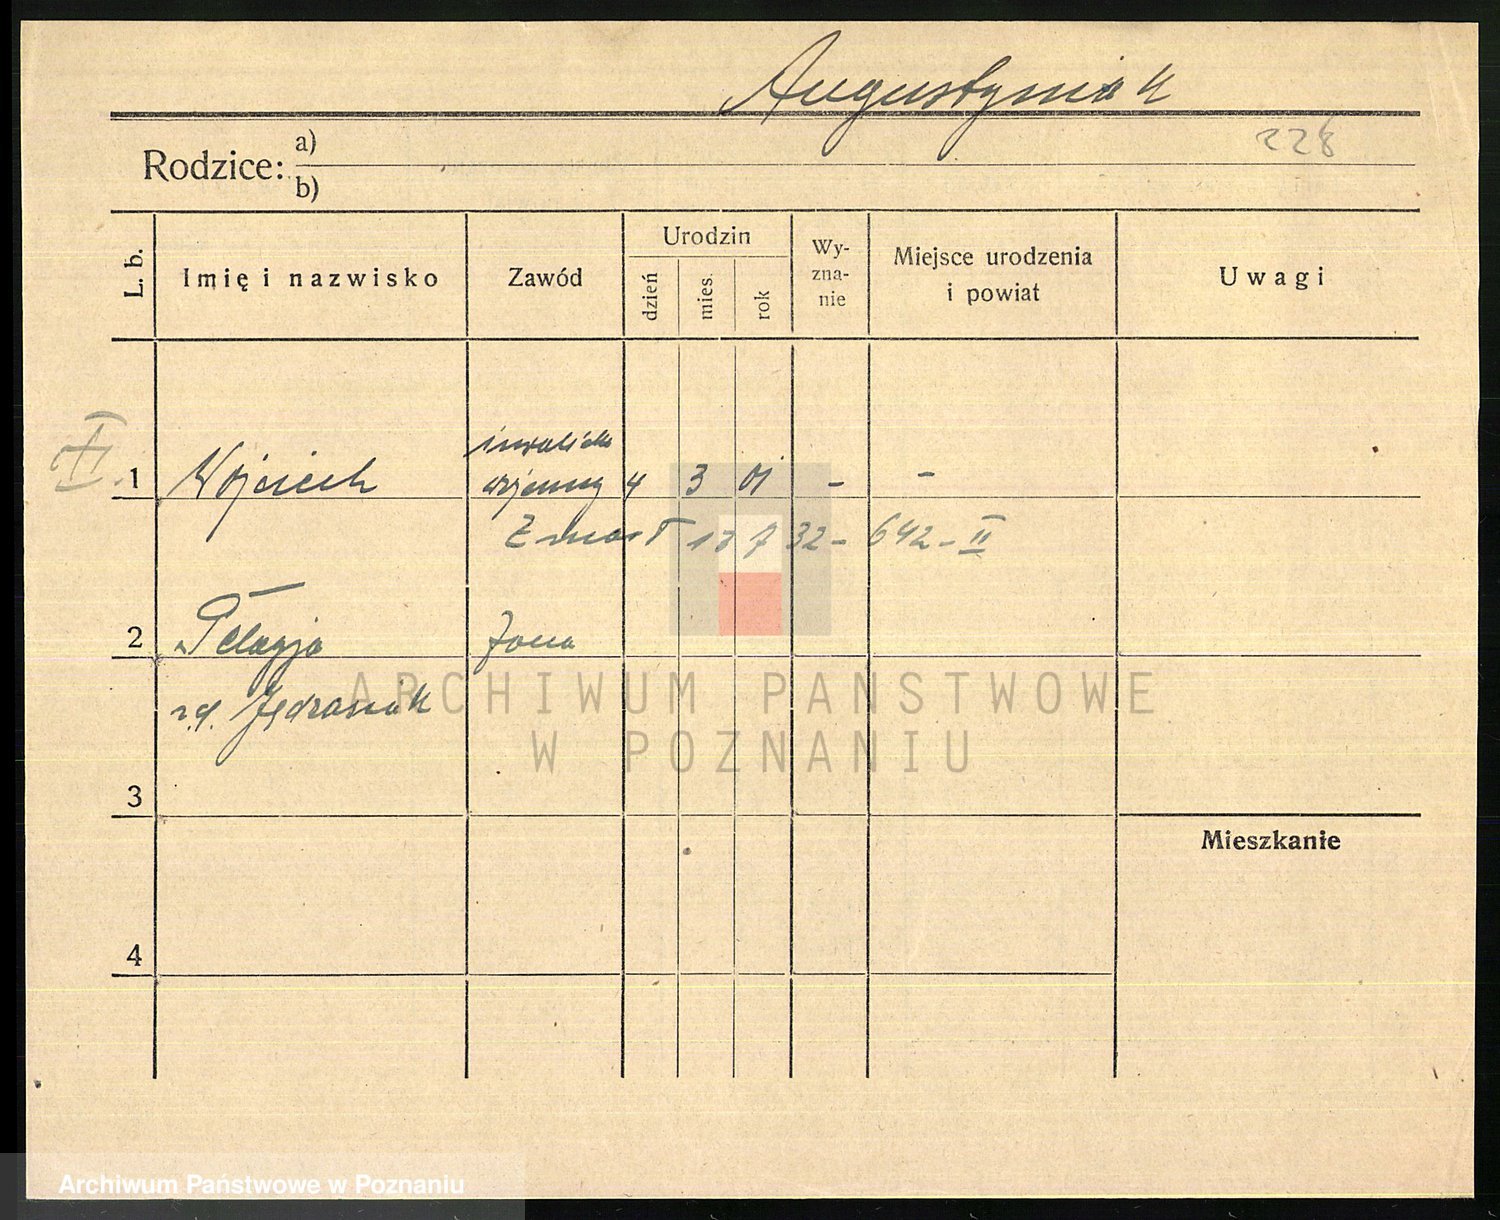 Augustyniak
228
Rodzice: a)
b)
L. b.
Imię i nazwisko
Zawód
Urodzin
dzień
mies.
rok
Wy-
zna-
nie
Miejsce urodzenia
i powiat
Uwagi
inwalida
1 Wojciech wojenny 4 3 01 - -
Zmarł 13 7 32 - 642 - II
2 Pelagja żona
ARCHIWUM PAŃSTWOWE
z d. Jędrasiak
W POZNANIU
3
Mieszkanie
4
Archiwum Państwowe w Poznaniu